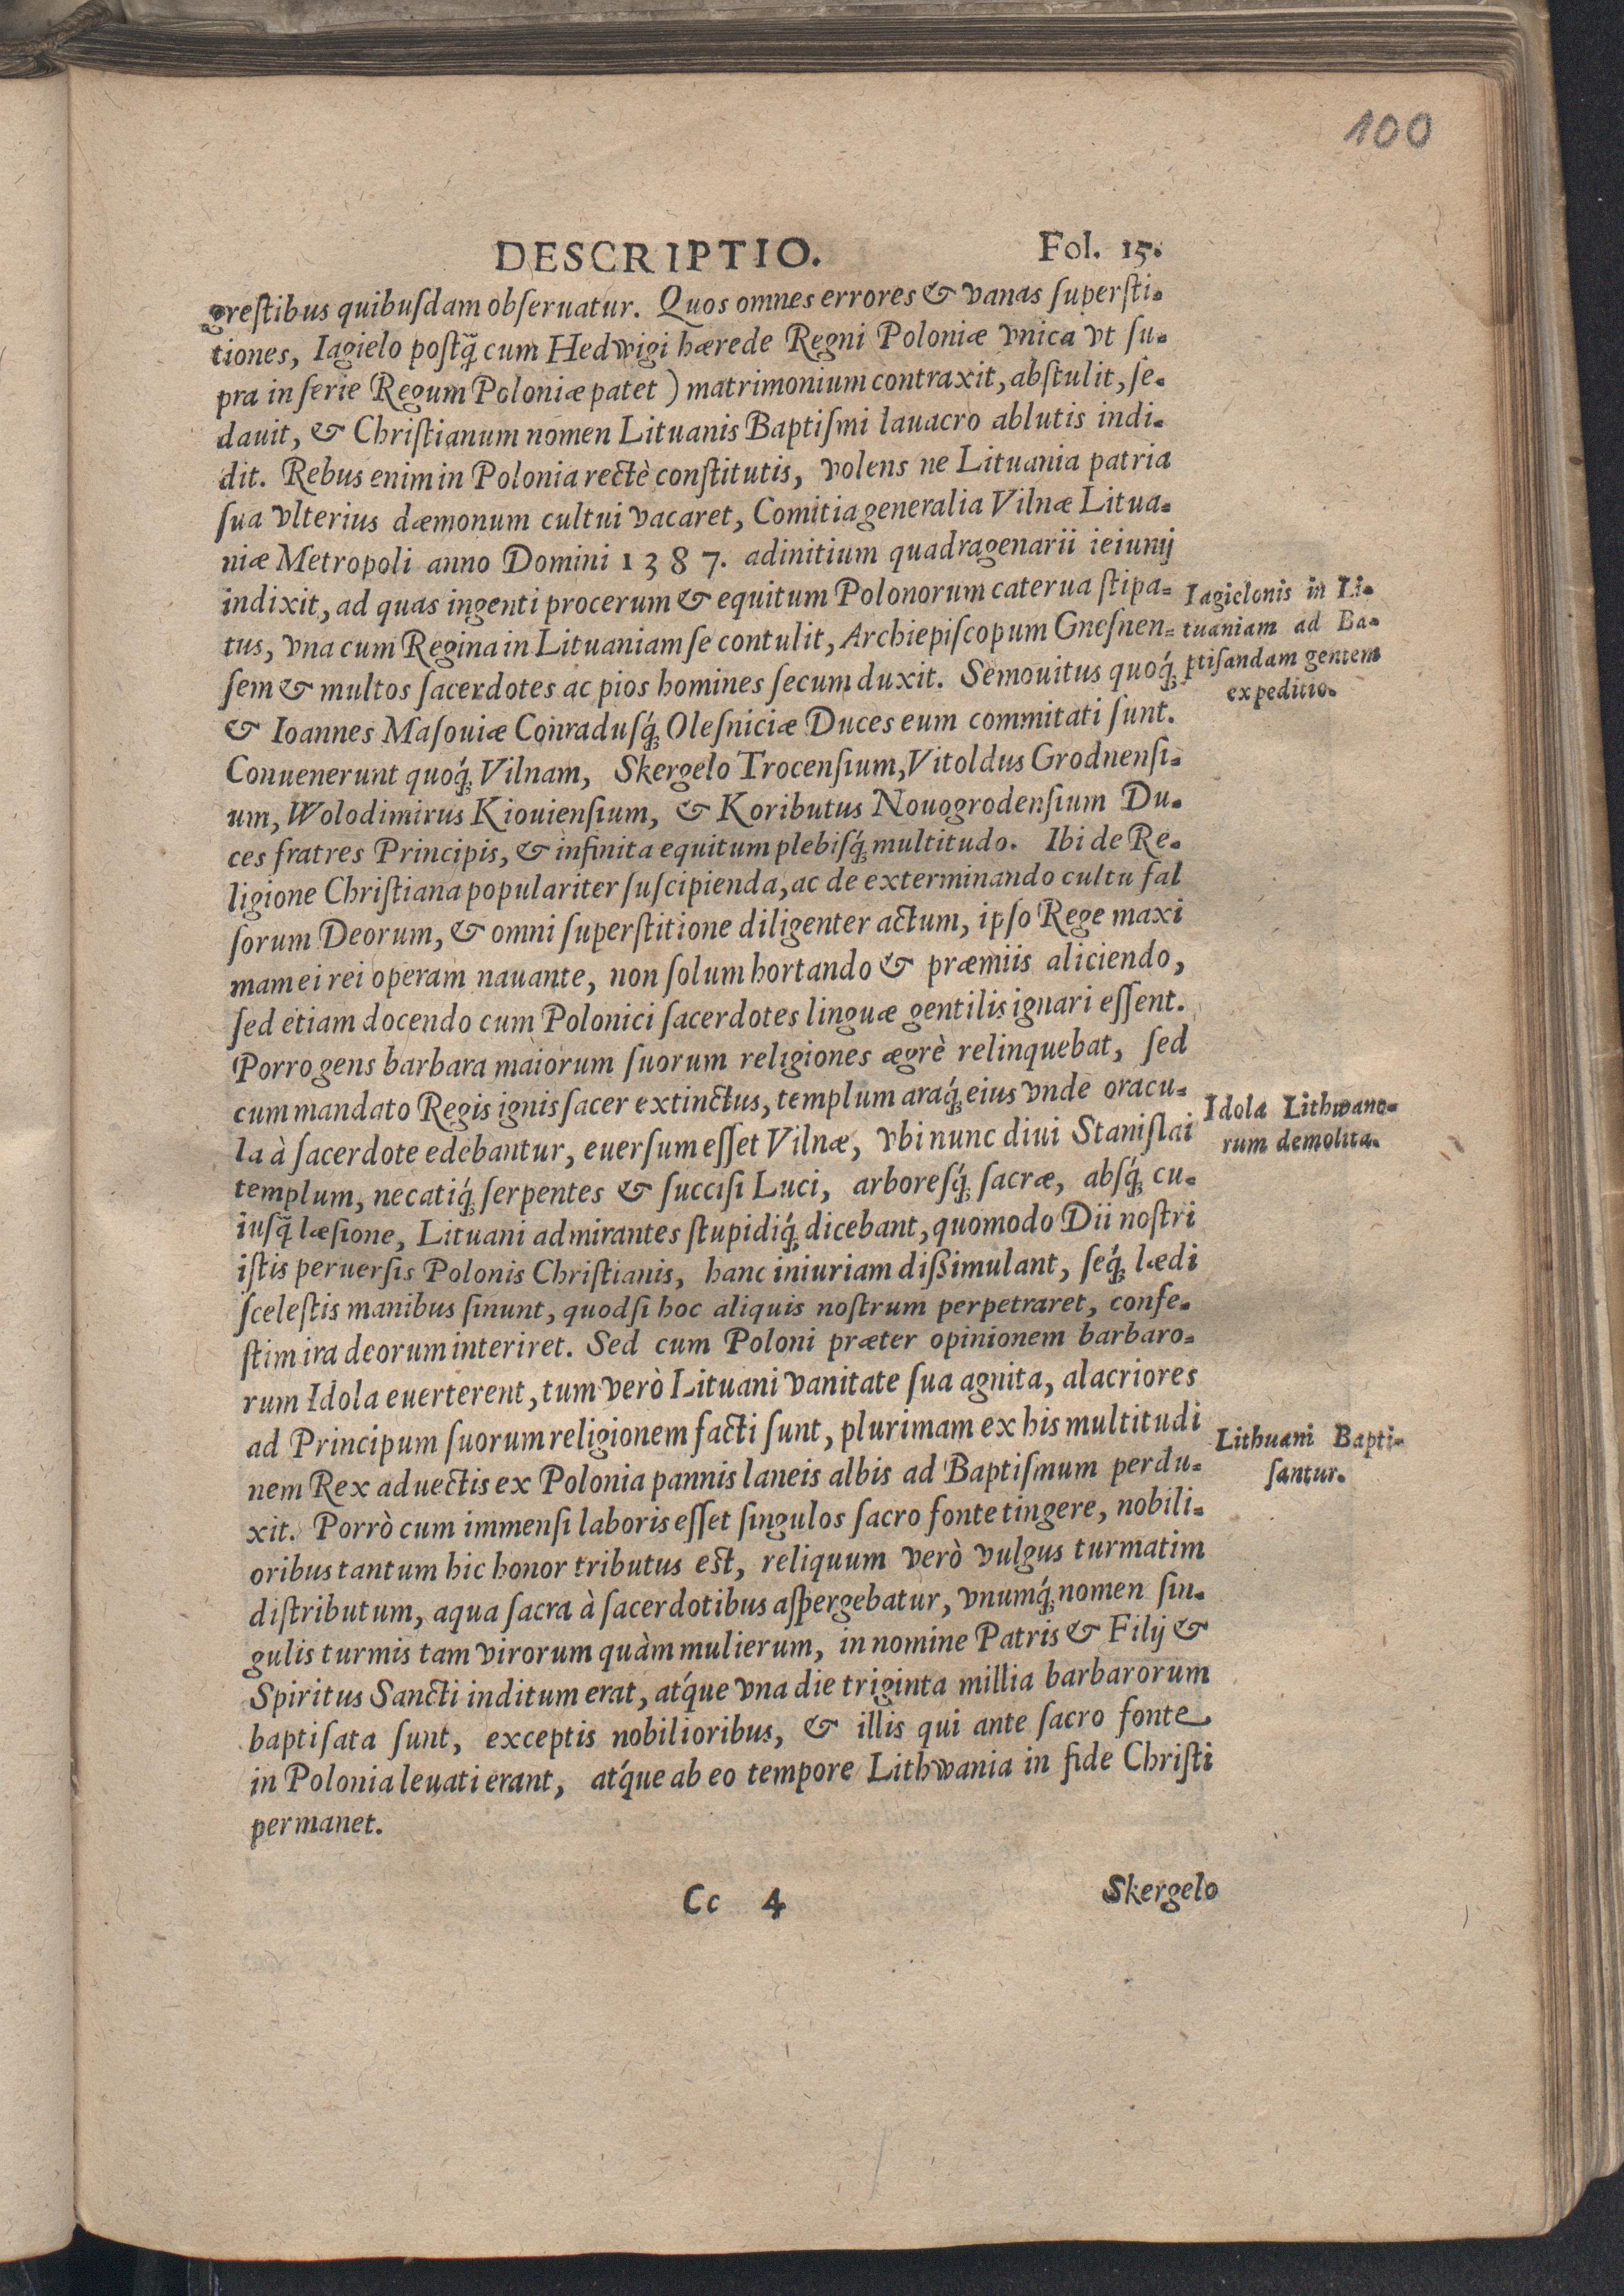 100
DESCRIPTIO. Fol. 15.
greſtibus quibuſdam obſeruatur. Quos omnes errores & vanas ſuperſti-
tiones, Iagielo poſtq̃ cum Hedwigi hærede Regni Poloniæ vnica vt ſu-
pra in ſerie Regum Poloniæ patet) matrimonium contraxit, abſtulit, ſe-
dauit, & Chriſtianum nomen Lituanis Baptiſmi lauacro ablutis indi-
dit. Rebus enim in Polonia rectè conſtitutis, volens ne Lituania patria
ſua vlterius dæmonum cultui vacaret, Comitia generalia Vilnæ Litua-
niæ Metropoli anno Domini 1387. ad initium quadragenarii ieiunij
indixit, ad quas ingenti procerum & equitum Polonorum caterua ſtipa-
tus, vna cum Regina in Lituaniam ſe contulit, Archiepiſcopum Gneſnen-
ſem & multos ſacerdotes ac pios homines ſecum duxit. Semouitus quoq́;
& Ioannes Maſouiæ Conraduſq́; Oleſniciæ Duces eum commitati ſunt.
Conuenerunt quoq́; Vilnam, Skergelo Trocenſium, Vitoldus Grodnenſi-
um, Wolodimirus Kiouienſium, & Koributus Nouogrodenſium Du-
ces fratres Principis, & infinita equitum plebiſq́; multitudo. Ibi de Re-
ligione Chriſtiana populariter ſuſcipienda, ac de exterminando cultu fal
ſorum Deorum, & omni ſuperſtitione diligenter actum, ipſo Rege maxi
mam ei rei operam nauante, non ſolum hortando & præmiis aliciendo,
ſed etiam docendo cum Polonici ſacerdotes linguæ gentilis ignari eſſent.
Porro gens barbara maiorum ſuorum religiones ægrè relinquebat, ſed
cum mandato Regis ignis ſacer extinctus, templum araq́; eius vnde oracu-
la à ſacerdote edebantur, euerſum eſſet Vilnæ, vbi nunc diui Staniſlai
templum, necatiq́; ſerpentes & ſucciſi Luci, arboreſq́; ſacræ, abſq́; cu-
iuſq̃ læſione, Lituani admirantes ſtupidiq́; dicebant, quomodo Dii noſtri
iſtis peruerſis Polonis Chriſtianis, hanc iniuriam dißimulant, ſeq́; lædi
ſceleſtis manibus ſinunt, quodſi hoc aliquis noſtrum perpetraret, confe-
ſtim ira deorum interiret. Sed cum Poloni præter opinionem barbaro-
rum Idola euerterent, tum verò Lituani vanitate ſua agnita, alacriores
ad Principum ſuorum religionem facti ſunt, plurimam ex his multitudi
nem Rex aduectis ex Polonia pannis laneis albis ad Baptiſmum perdu-
xit. Porrò cum immenſi laboris eſſet ſingulos ſacro fonte tingere, nobili-
oribus tantum hic honor tributus est, reliquum verò vulgus turmatim
diſtributum, aqua ſacra à ſacerdotibus aſpergebatur, vnumq́; nomen ſin-
gulis turmis tam virorum quàm mulierum, in nomine Patris & Filij &
Spiritus Sancti inditum erat, atq́ue vna die triginta millia barbarorum
baptiſata ſunt, exceptis nobilioribus, & illis qui ante ſacro fonte
in Polonia leuati erant, atq́ue ab eo tempore Lithwania in fide Chriſti
permanet.
Iagielonis in Li-
tuaniam ad Ba-
ptiſandam gentem
expeditio.
Idola Lithwano-
rum demolita.
Lithuani Bapti-
ſantur.
Cc 4 Skergelo